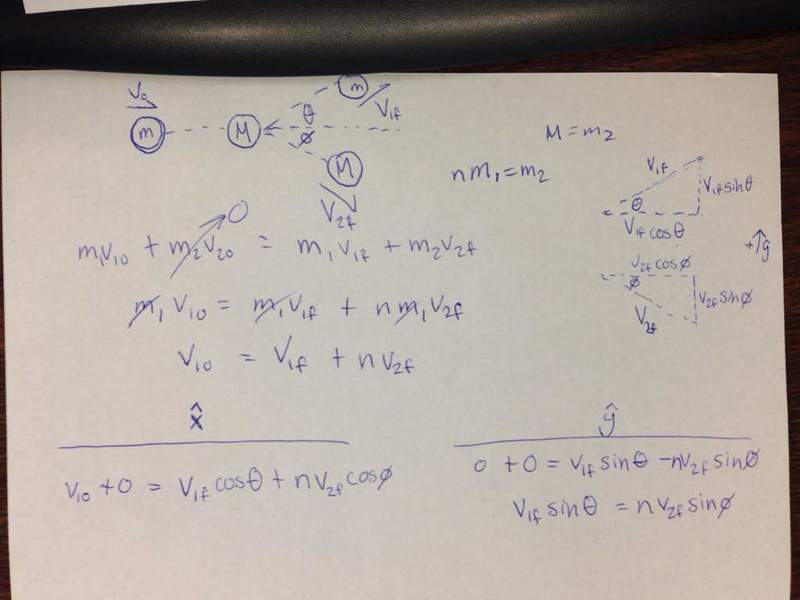 V₀ m M θ ϕ m V₁f
M V₂f
M = m₂
nm₁ = m₂
V₁f θ V₁f sinθ V₁f cosθ
+↑y
V₂f cosϕ ϕ V₂f sinϕ V₂f
0
m₁V₁₀ + m₂V₂₀ = m₁V₁f + m₂V₂f
m₁V₁₀ = m₁V₁f + nm₁V₂f
V₁₀ = V₁f + nV₂f
x̂
V₁₀ + 0 = V₁f cosθ + nV₂f cosϕ
ŷ
0 + 0 = V₁f sinθ − nV₂f sinϕ
V₁f sinθ = nV₂f sinϕ